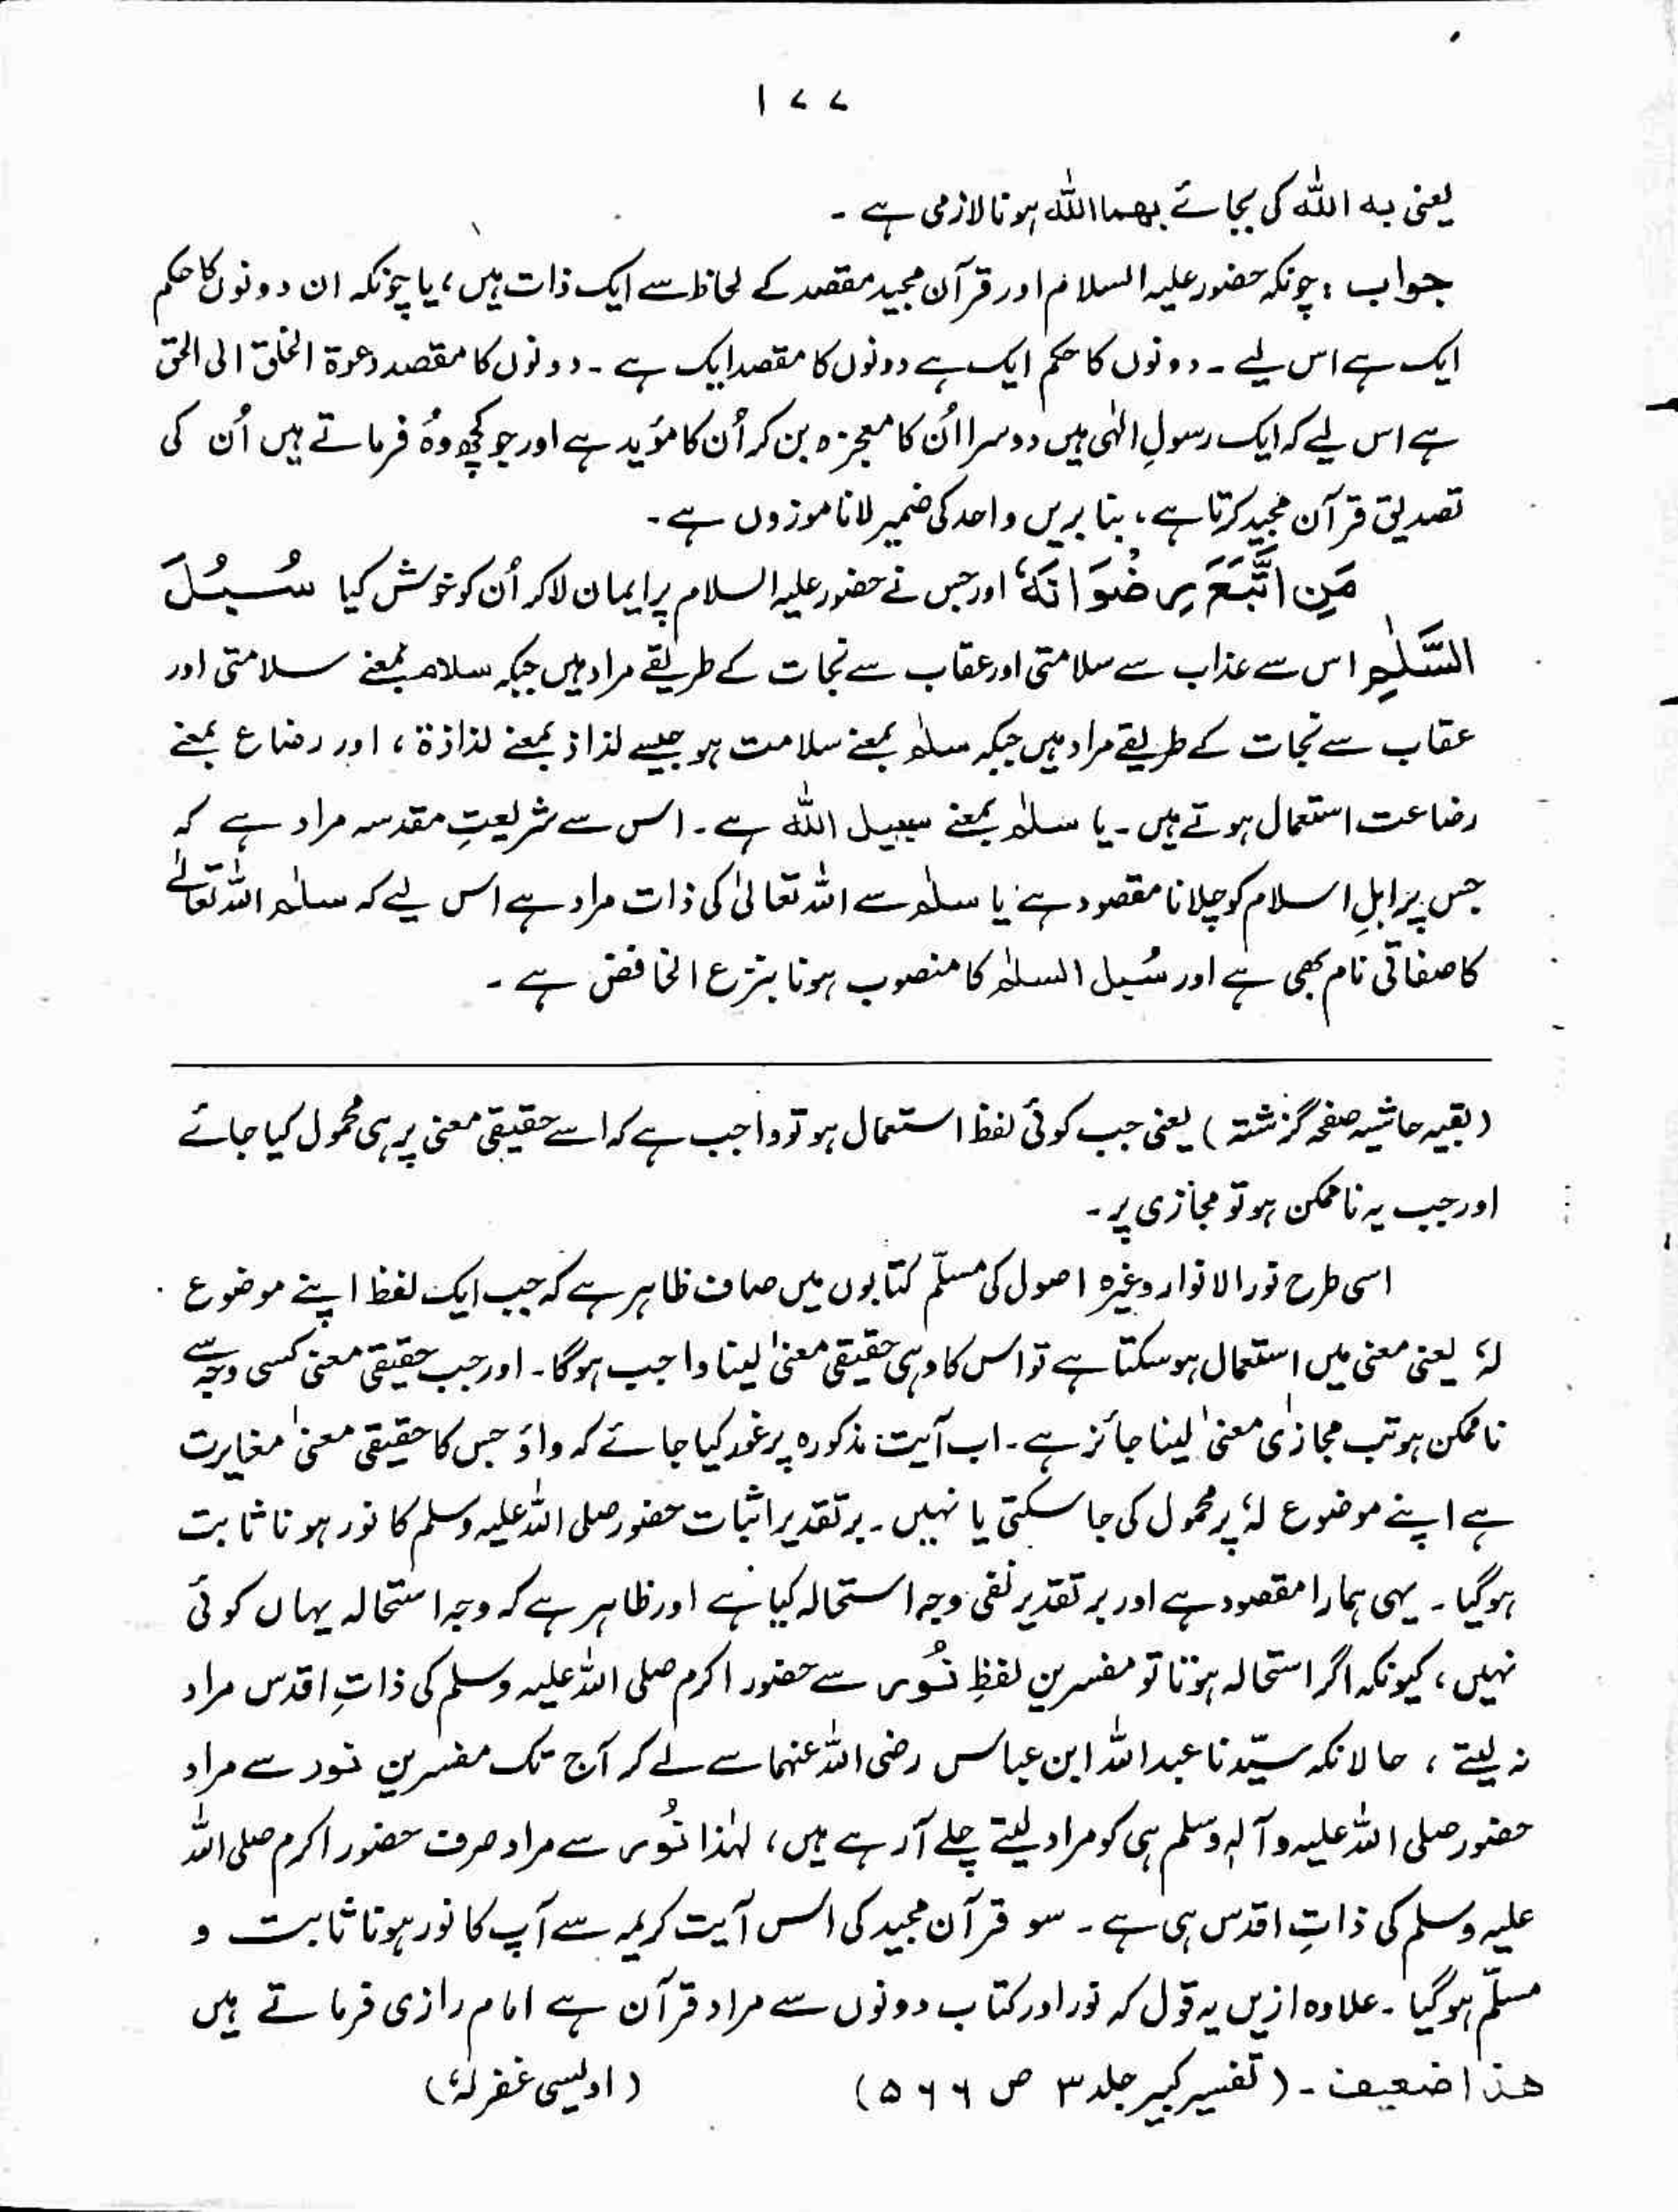 ۱۷۷
یعنی بہ اللہ کی بجائے بھما اللہ ہونا لازمی ہے ۔
جواب : چونکہ حضور علیہ السلام اور قرآن مجید مقصد کے لحاظ سے ایک ذات ہیں ، یا چونکہ ان دونوں کا حکم
ایک ہے اس لیے ۔ دونوں کا حکم ایک ہے دونوں کا مقصد ایک ہے ۔ دونوں کا مقصد دعوۃ الخلق الی الحق
ہے اس لیے کہ ایک رسولِ الٰہی ہیں دوسرا اُن کا معجزہ بن کر اُن کا مؤید ہے اور جو کچھ وہُ فرماتے ہیں اُن کی
تصدیق قرآن مجید کرتا ہے ، بنا بریں واحد کی ضمیر لانا موزوں ہے ۔
مَنِ اتَّبَعَ رِضْوَانَهٗ اور جس نے حضور علیہ السلام پر ایمان لا کر اُن کو خوش کیا سُبُلَ
السَّلٰمِ اس سے عذاب سے سلامتی اور عقاب سے نجات کے طریقے مراد ہیں جبکہ سلام بمعنے سلامتی اور
عقاب سے نجات کے طریقے مراد ہیں جبکہ سلٰم بمعنے سلامت ہو جیسے لذاذ بمعنے لذاذۃ ، اور رضاع بمعنے
رضاعت استعمال ہوتے ہیں ۔ یا سلٰم بمعنے سبیل اللہ ہے ۔ اس سے شریعتِ مقدسہ مراد ہے کہ
جس پر اہلِ اسلام کو چلانا مقصود ہے یا سلٰم سے اللہ تعالیٰ کی ذات مراد ہے اس لیے کہ سلٰم اللہ تعالٰے
کا صفاتی نام بھی ہے اور سُبل السلٰم کا منصوب ہونا بنزع الخافض ہے ۔
( بقیہ حاشیہ صفحہ گزشتہ ) یعنی جب کوئی لفظ استعمال ہو تو واجب ہے کہ اسے حقیقی معنی پر ہی محمول کیا جائے
اور جب یہ ناممکن ہو تو مجازی پر ۔
اسی طرح نور الانوار وغیرہ اصول کی مسلّم کتابوں میں صاف ظاہر ہے کہ جب ایک لفظ اپنے موضوع
لہٗ یعنی معنی میں استعمال ہو سکتا ہے تو اس کا وہی حقیقی معنیٰ لینا واجب ہوگا ۔ اور جب حقیقی معنی کسی وجہ سے
ناممکن ہو تب مجازی معنیٰ لینا جائز ہے ۔ اب آیت مذکورہ پر غور کیا جائے کہ واؤ جس کا حقیقی معنیٰ مغایرت
ہے اپنے موضوع لہٗ پر محمول کی جا سکتی یا نہیں ۔ بر تقدیر اثبات حضور صلی اللہ علیہ وسلم کا نور ہونا ثابت
ہوگیا ۔ یہی ہمارا مقصود ہے اور بر تقدیر نفی وجہ استحالہ کیا ہے اور ظاہر ہے کہ وجہ استحالہ یہاں کوئی
نہیں ، کیونکہ اگر استحالہ ہوتا تو مفسرین لفظِ نُور سے حضور اکرم صلی اللہ علیہ وسلم کی ذاتِ اقدس مراد
نہ لیتے ، حالانکہ سیّدنا عبداللہ ابن عباس رضی اللہ عنہما سے لے کر آج تک مفسرین نور سے مراد
حضور صلی اللہ علیہ وآلہٖ وسلم ہی کو مراد لیتے چلے آرہے ہیں ، لہٰذا نُور سے مراد صرف حضور اکرم صلی اللہ
علیہ وسلم کی ذاتِ اقدس ہی ہے ۔ سو قرآن مجید کی اس آیت کریمہ سے آپ کا نور ہونا ثابت و
مسلّم ہوگیا ۔ علاوہ ازیں یہ قول کہ نور اور کتاب دونوں سے مراد قرآن ہے امام رازی فرماتے ہیں
ھذا ضعیف ۔ ( تفسیر کبیر جلد ۳ ص ۵۶۶ ) ( اویسی غفرلہٗ )